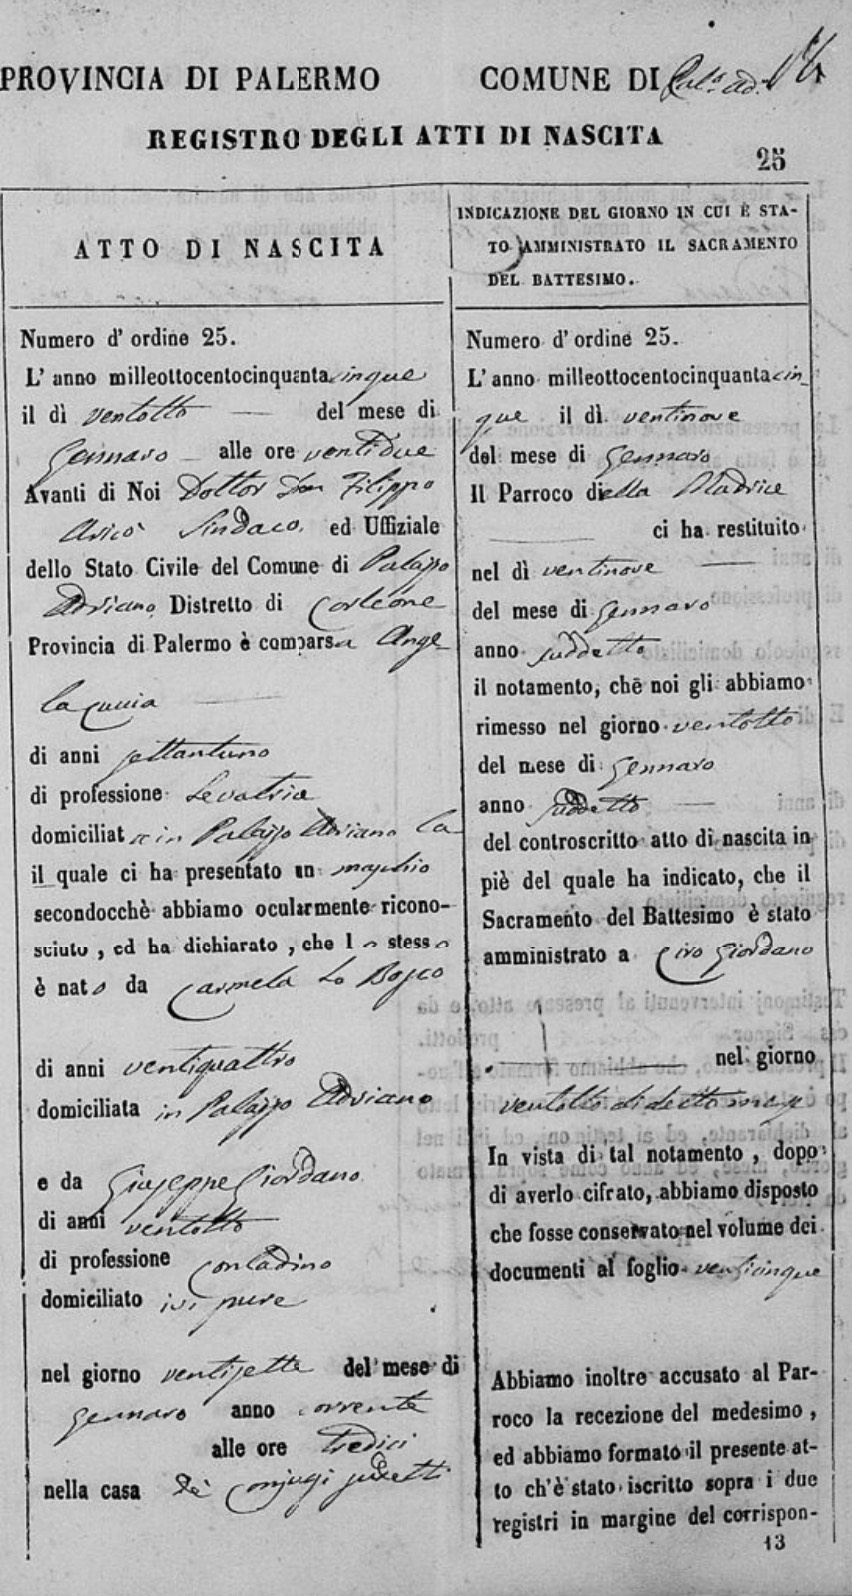 PROVINCIA DI PALERMO
COMUNE DI Pal.º Ad.
REGISTRO DEGLI ATTI DI NASCITA
25
ATTO DI NASCITA
Numero d' ordine 25.
L' anno milleottocentocinquantacinque
il dì ventotto del mese di
Gennaro alle ore ventidue
Avanti di Noi Dottor Don Filippo
Aricò Sindaco ed Uffiziale
dello Stato Civile del Comune di Palazzo
Adriano Distretto di Corleone
Provincia di Palermo è comparsa Ange_
la Cuccia
di anni settantuno
di professione Levatrice
domiciliata in Palazzo Adriano la
il quale ci ha presentato un maschio
secondocchè abbiamo ocularmente ricono-
sciuto, ed ha dichiarato, che lo stesso
è nato da Carmela Lo Bosco
di anni ventiquattro
domiciliata in Palazzo Adriano
e da Giuseppe Giordano
di anni ventotto
di professione Contadino
domiciliato ivi pure
nel giorno ventisette del mese di
Gennaro anno corrente
alle ore tredici
nella casa de' Conjugi sudetti
INDICAZIONE DEL GIORNO IN CUI È STA-
TO AMMINISTRATO IL SACRAMENTO
DEL BATTESIMO.
Numero d' ordine 25.
L' anno milleottocentocinquantacin_
que il dì ventinove
del mese di Gennaro
Il Parroco della Madrice
ci ha restituito
nel dì ventinove
del mese di Gennaro
anno suddetto
il notamento, che noi gli abbiamo
rimesso nel giorno ventotto
del mese di Gennaro
anno suddetto
del controscritto atto di nascita in
piè del quale ha indicato, che il
Sacramento del Battesimo è stato
amministrato a Ciro Giordano
nel giorno
ventotto di detto mese
In vista di tal notamento, dopo
di averlo cifrato, abbiamo disposto
che fosse conservato nel volume dei
documenti al foglio venticinque
Abbiamo inoltre accusato al Par-
roco la recezione del medesimo,
ed abbiamo formato il presente at-
to ch'è stato iscritto sopra i due
registri in margine del corrispon-
13